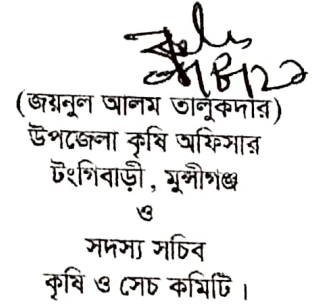 (জয়নুল আলম তালুকদার)
উপজেলা কৃষি অফিসার
টংগিবাড়ী , মুন্সীগঞ্জ
ও
সদস্য সচিব
কৃষি ও সেচ কমিটি ।